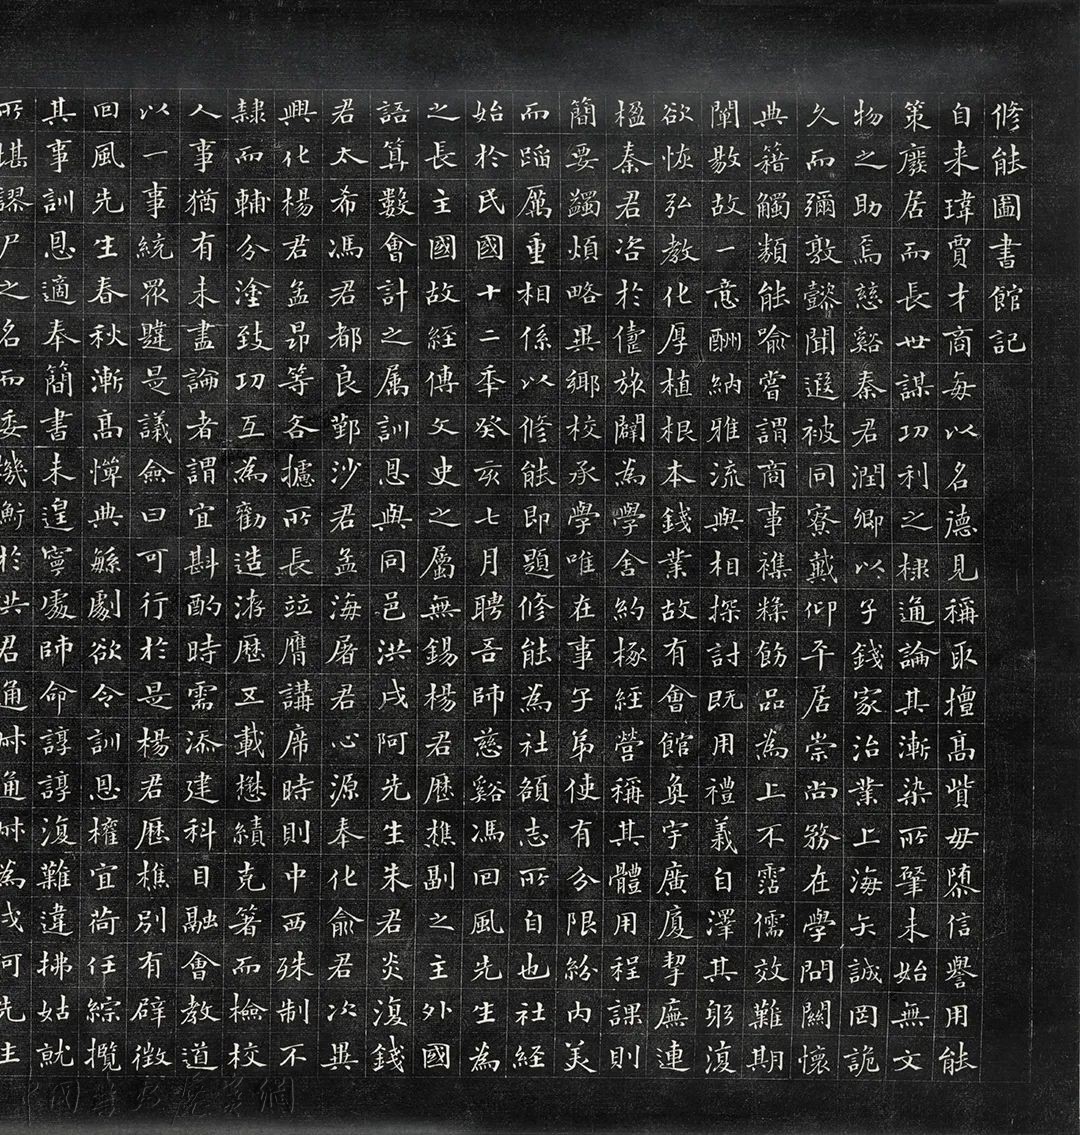 修能圖書館記
自來瑋賈才商每以名德見稱取擅高貲毋隳信譽用能
策廢居而長世謀功利之棣通論其漸染所肇未始無文
物之助焉慈谿秦君潤卿以子錢家治業上海矢誠罔詭
久而彌敦懿聞遐被同寮戴仰平居崇尚務在學問關懷
典籍觸類能喻嘗謂商事襍糅飭品為上不霑儒效難期
闡敭故一意酬納雅流與相探討既用禮義自澤其躬復
欲恢弘教化厚植根本錢業故有會館奐宇廣廈挈廡連
楹秦君咨於儓旅闢為學舍約極經營稱其體用程課則
簡要蠲煩略異鄉校承學唯在事子弟使有分限紛內美
而蹈厲重相係以修能即題修能為社額志所自也社經
始於民國十二秊癸亥七月聘吾師慈谿馮回風先生為
之長主國故經傳文史之屬無錫楊君歷樵副之主外國
語算數會計之屬訓恩與同邑洪戍阿先生朱君炎復錢
君太希馮君都良鄞沙君孟海屠君心源奉化俞君次異
興化楊君孟昂等各攄所長竝膺講席時則中西殊制不
隸而輔分塗致功互為勸造游歷五載懋績克著而檢校
人事猶有未盡論者謂宜斟酌時需添建科目融會教道
以一事統眾韙是議僉曰可行於是楊君歷樵別有辟徵
回風先生春秋漸高憚典緐劇欲令訓恩權宜荷任綜攬
其事訓恩適奉簡書未遑寧處師命諄諄復難違拂姑就
所堪謬尸之名而委機衡於洪君通叔通叔為戍阿先生